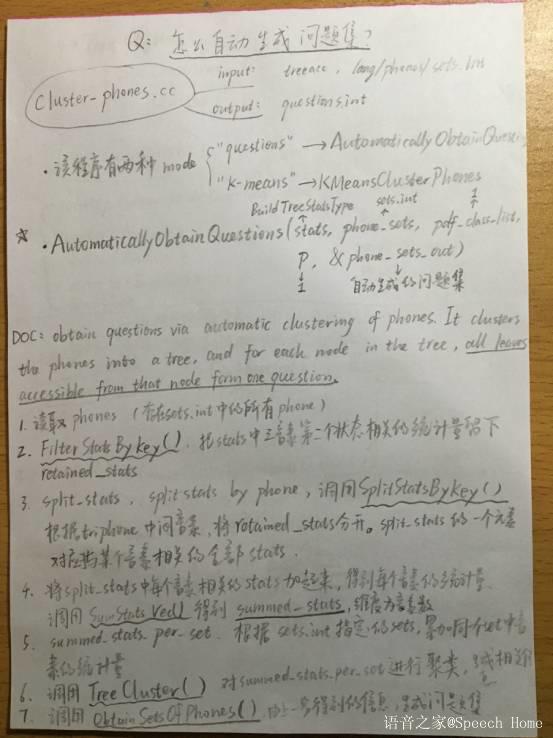 Q: 怎么自动生成问题集?
cluster-phones.cc
input: treeacc, lang/phones/sets.int
output: questions.int
·该程序有两种 mode
"questions" → AutomaticallyObtainQuestio
"k-means" → KMeansClusterPhones
BuildTreeStatsType sets.int 1
☆ ·AutomaticallyObtainQuestions(stats, phone_sets, pdf_class_list,
P, &phone_sets_out)
1 自动生成的问题集
DOC: obtain questions via automatic clustering of phones. It clusters
the phones into a tree, and for each node in the tree, all leaves
accessible from that node form one question.
1. 读取 phones (存在sets.int中的所有phone)
2. FilterStatsByKey(). 把stats中三音素第二个状态相关的统计量留下
rotained_stats
3. split_stats. split stats by phone, 调用SplitStatsByKey()
根据triphone中间音素, 将rotained_stats分开。split_stats的一个元素
对应与某个音素相关的全部stats.
4. 将split_stats中每个音素相关的stats加起来, 得到每个音素的统计量.
调用SumStatsVec() 得到summed_stats, 维度为音素数
5. summed_stats_per_set. 根据sets.int指定的sets, 累加同个set中音
素的统计量
6. 调用TreeCluster() 对summed_stats_per_set进行聚类,
7. 调用ObtainSetsOfPhones(), 由上一步得到的信息, 生成问题集
语音之家@Speech Home